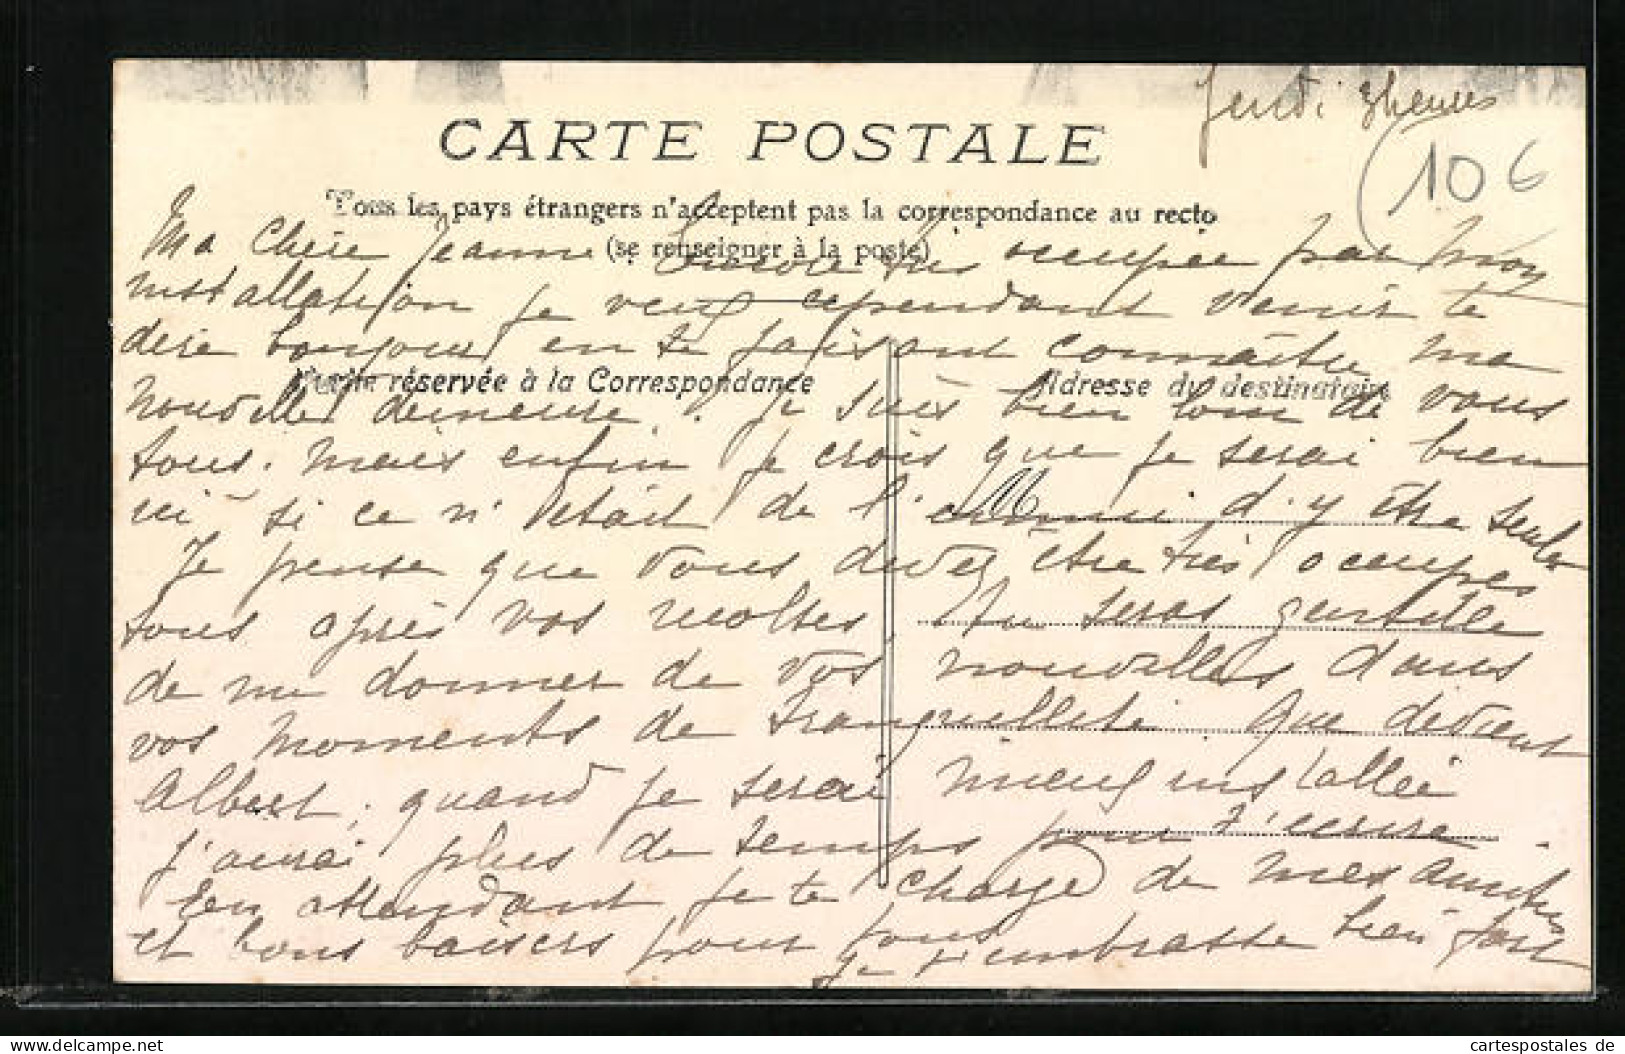 Jeudi 3 heures
106
CARTE POSTALE
Tous les pays étrangers n'acceptent pas la correspondance au recto
(se renseigner à la poste)
Ma Chère Jeanne Encore très occupée par mon
installation je veux cependant venir te
dire bonjour en te faisant connaître ma
Partie réservée à la Correspondance
Adresse du destinataire
nouvelle demeure. Je suis bien loin de vous
tous. mais enfin je crois que je serai bien
ici si ce n'était de l'ennui d'y être seule
Je pense que vous devez être très occupés
tous après vos récoltes, tu seras gentille
de me donner de vos nouvelles dans
vos moments de tranquillité. Que devient
Albert, quand je serai mieux installée
j'aurai plus de temps pour t'écrire.
En attendant je te charge de mes amitiés
et bons baisers pour tous
je t'embrasse bien fort
www.cartespostales.de
cartespostales de